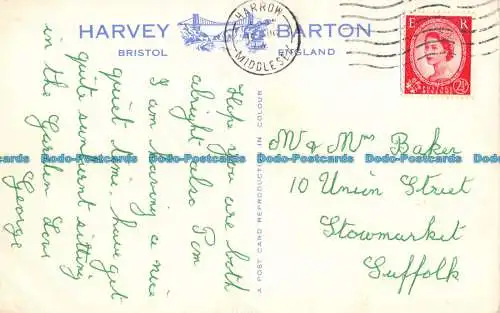 HARVEY BARTON
BRISTOL ENGLAND
HARROW
MIDDLESEX
E R
POSTAGE REVENUE
2½
A POST CARD REPRODUCTION IN COLOUR
Hope you are both
alright also Tom
I am having a nice
quiet time. have got
quite sunburnt sitting
in the Garden Love
George
Mr & Mrs Baker
10 Union Street
Stowmarket
Suffolk
Dodo-Postcards Dodo-Postcards Dodo-Postcards Dodo-Postcards